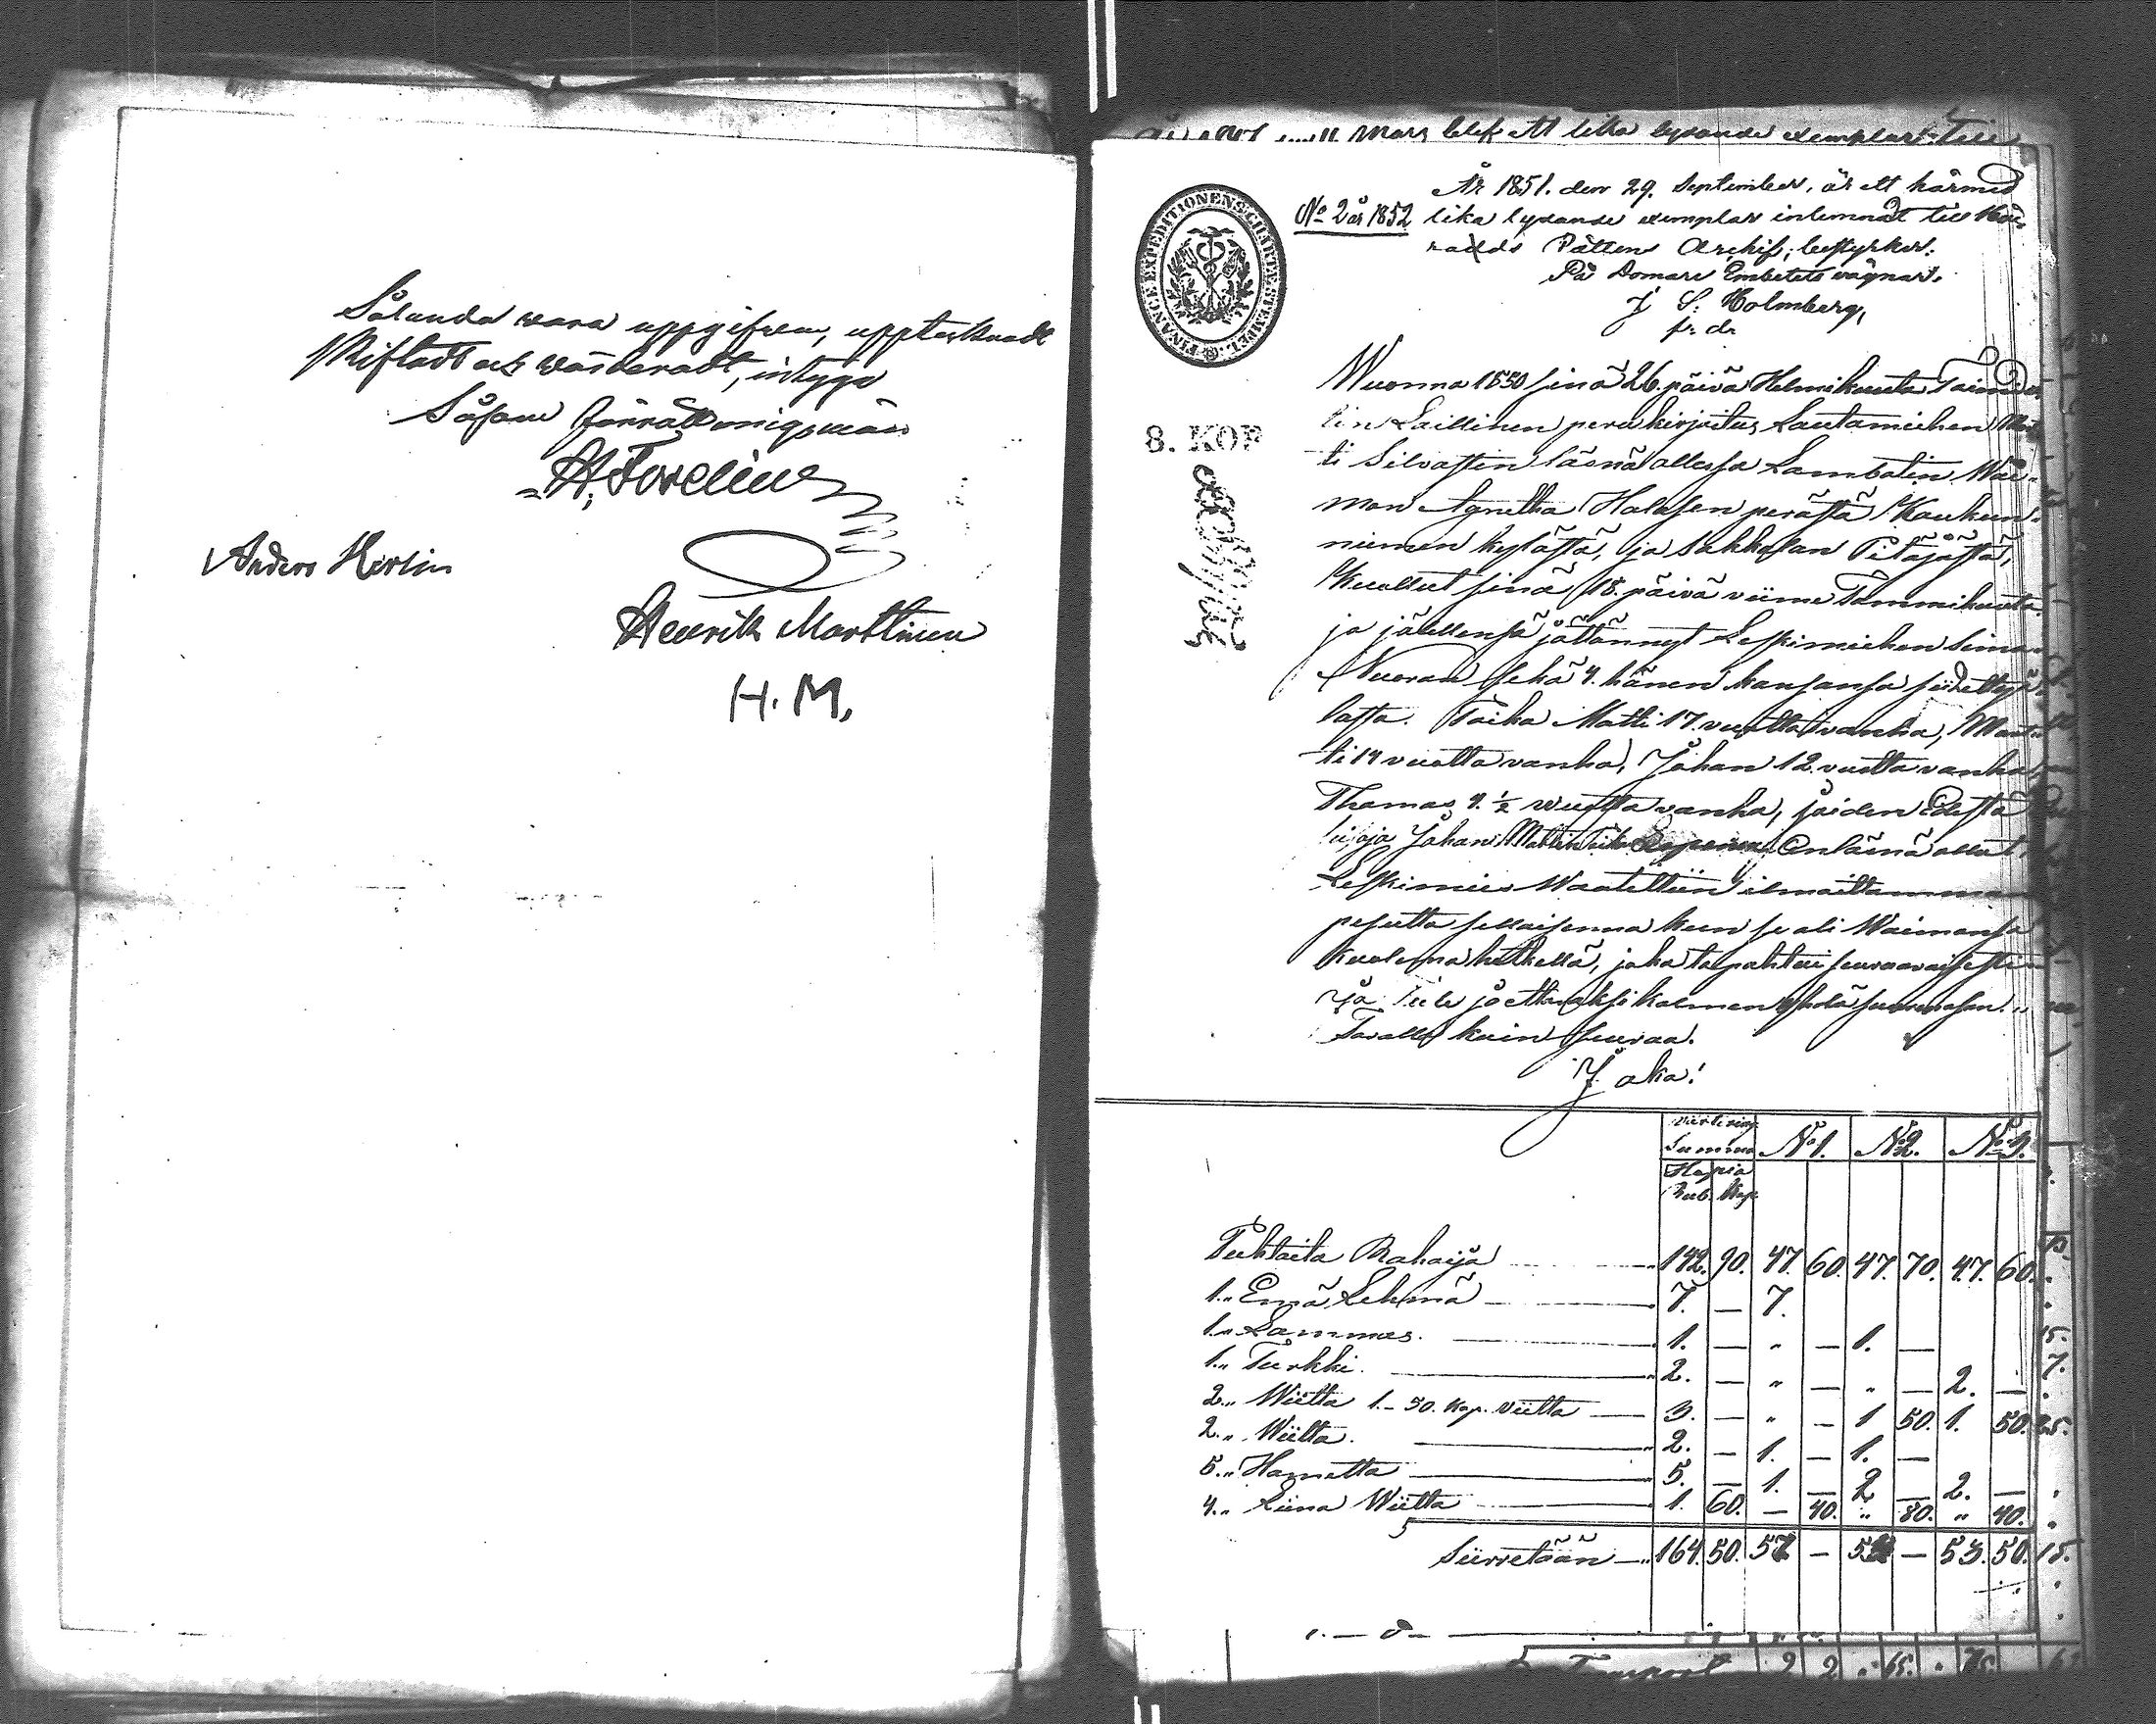 Sålunda vara uppgifvet, upptecknadt
skiftadt och värderadt, intyga
Såsom förrättningsmän
A. Forelius
Anders Hirlin
Henrik Marttinen
H. M.
Mars blef ett lika lydande exemplar
År 1851. den 29. September, är ett härmed
No 2 år 1852 lika lydande exemplar inlemnat till Hä-
radds Rättens Archif; bestyrker.
På Domare Embetets vägnar.
J. S. Holmberg,
FINANCE EXPEDITIONENS CHARTÆ STEMPEL.
8. KOP
Wuonna 1850 sinä 26. päivä Helmikuuta Toimitet-
tin Laillinen perukirjoitus Lautamiehen Mar-
ti Silvastin läsnä ollessa Lambotin Wai-
mon Agnetha Halosen perästä Haukun-
niemen kylästä, ja Sakkolan Pitäjästä,
Kuollut sinä 18. päivä viime Tammikuuta
ja jälkensä jättännyt Leskimiehen Simon
Nuoran sekä 4. hänen kansansa siitettyä
lasta. Poika Matti 17 vuotta vanha, Mart-
ti 14 vuotta vanha, Johan 12 vuotta vanha,
Thomas 4. ½ wuotta vanha, joiden Edestä
Johan Matin poika läsnä ollut,
Leskimies Waatettiin ilmoittamman
pesutta sellaisenna kun se oli Waimonsa
kuolema hetkellä, joka tapahtui seuraavaisesti
ja tule jaettavaksi kolmen
Tavalla kuin seuraa.
Jako!
Summa No 1. No 2. No 3.
Hopia
Rub. Kop.
Puhtaita Rahoija 142. 90. 47. 60. 47. 70. 47. 60.
1.„ Emä Lehmä 7. — 7.
1.„ Lammas. 1. — „ — 1. —
1.„ Turkki. 2. — „ — „ — 2. —
2.„ Wiitta 1.- 50. Kop. viitta 3. — „ — 1 50. 1. 50.
2.„ Wiitta. 2. — 1. — 1. —
5.„ Hametta 5. — 1. — 2 — 2. —
4.„ Liina Wiitta 1. 60. — 40. „ 80. „ 40.
Siirretään 164. 50. 57 — 54 — 53. 50.
Transport